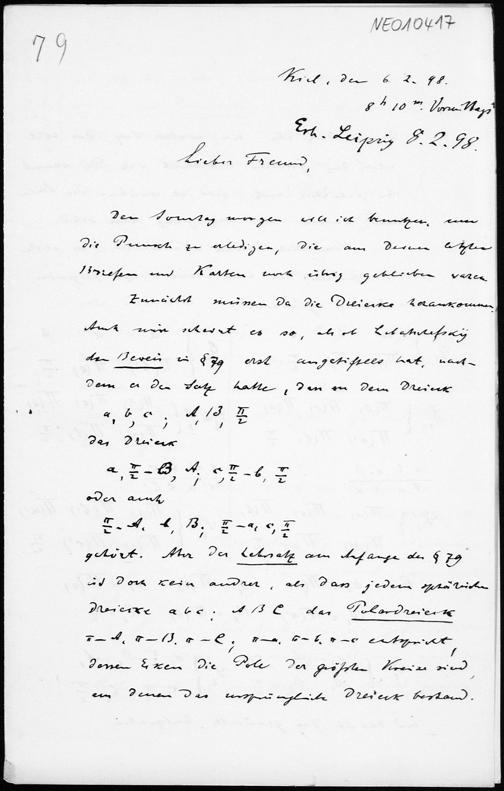 79
NEO10417
Kiel, den 6. 2. 98.
8h 10m. Vormittags
Erh. Leipzig 8. 2. 98.
Lieber Freund,
Den Sonntag morgen will ich benutzen, um
die Punkte zu erledigen, die aus Deinen letzten
Briefen und Karten noch übrig geblieben waren.
Zunächst müssen da die Dreiecke herankommen.
Auch mir scheint es so, als ob Lobatschefskij
den Beweis in § 79 erst angetiftelt hat, nach-
dem er den Satz hatte, dass zu dem Dreieck
a, b, c; A, B, π/2
das Dreieck
a, π/2 − B, A; c, π/2 − b, π/2
oder auch
π/2 − A, b, B; π/2 − a, c, π/2
gehört. Aber der Lehrsatz am Anfange des § 79
ist doch kein andrer, als dass jedem sphärischen
Dreiecke a b c; A B C das Polardreieck
π − A, π − B, π − C; π − a, π − b, π − c entspricht,
dessen Ecken die Pole der größten Kreise sind,
aus denen das ursprüngliche Dreieck bestand.